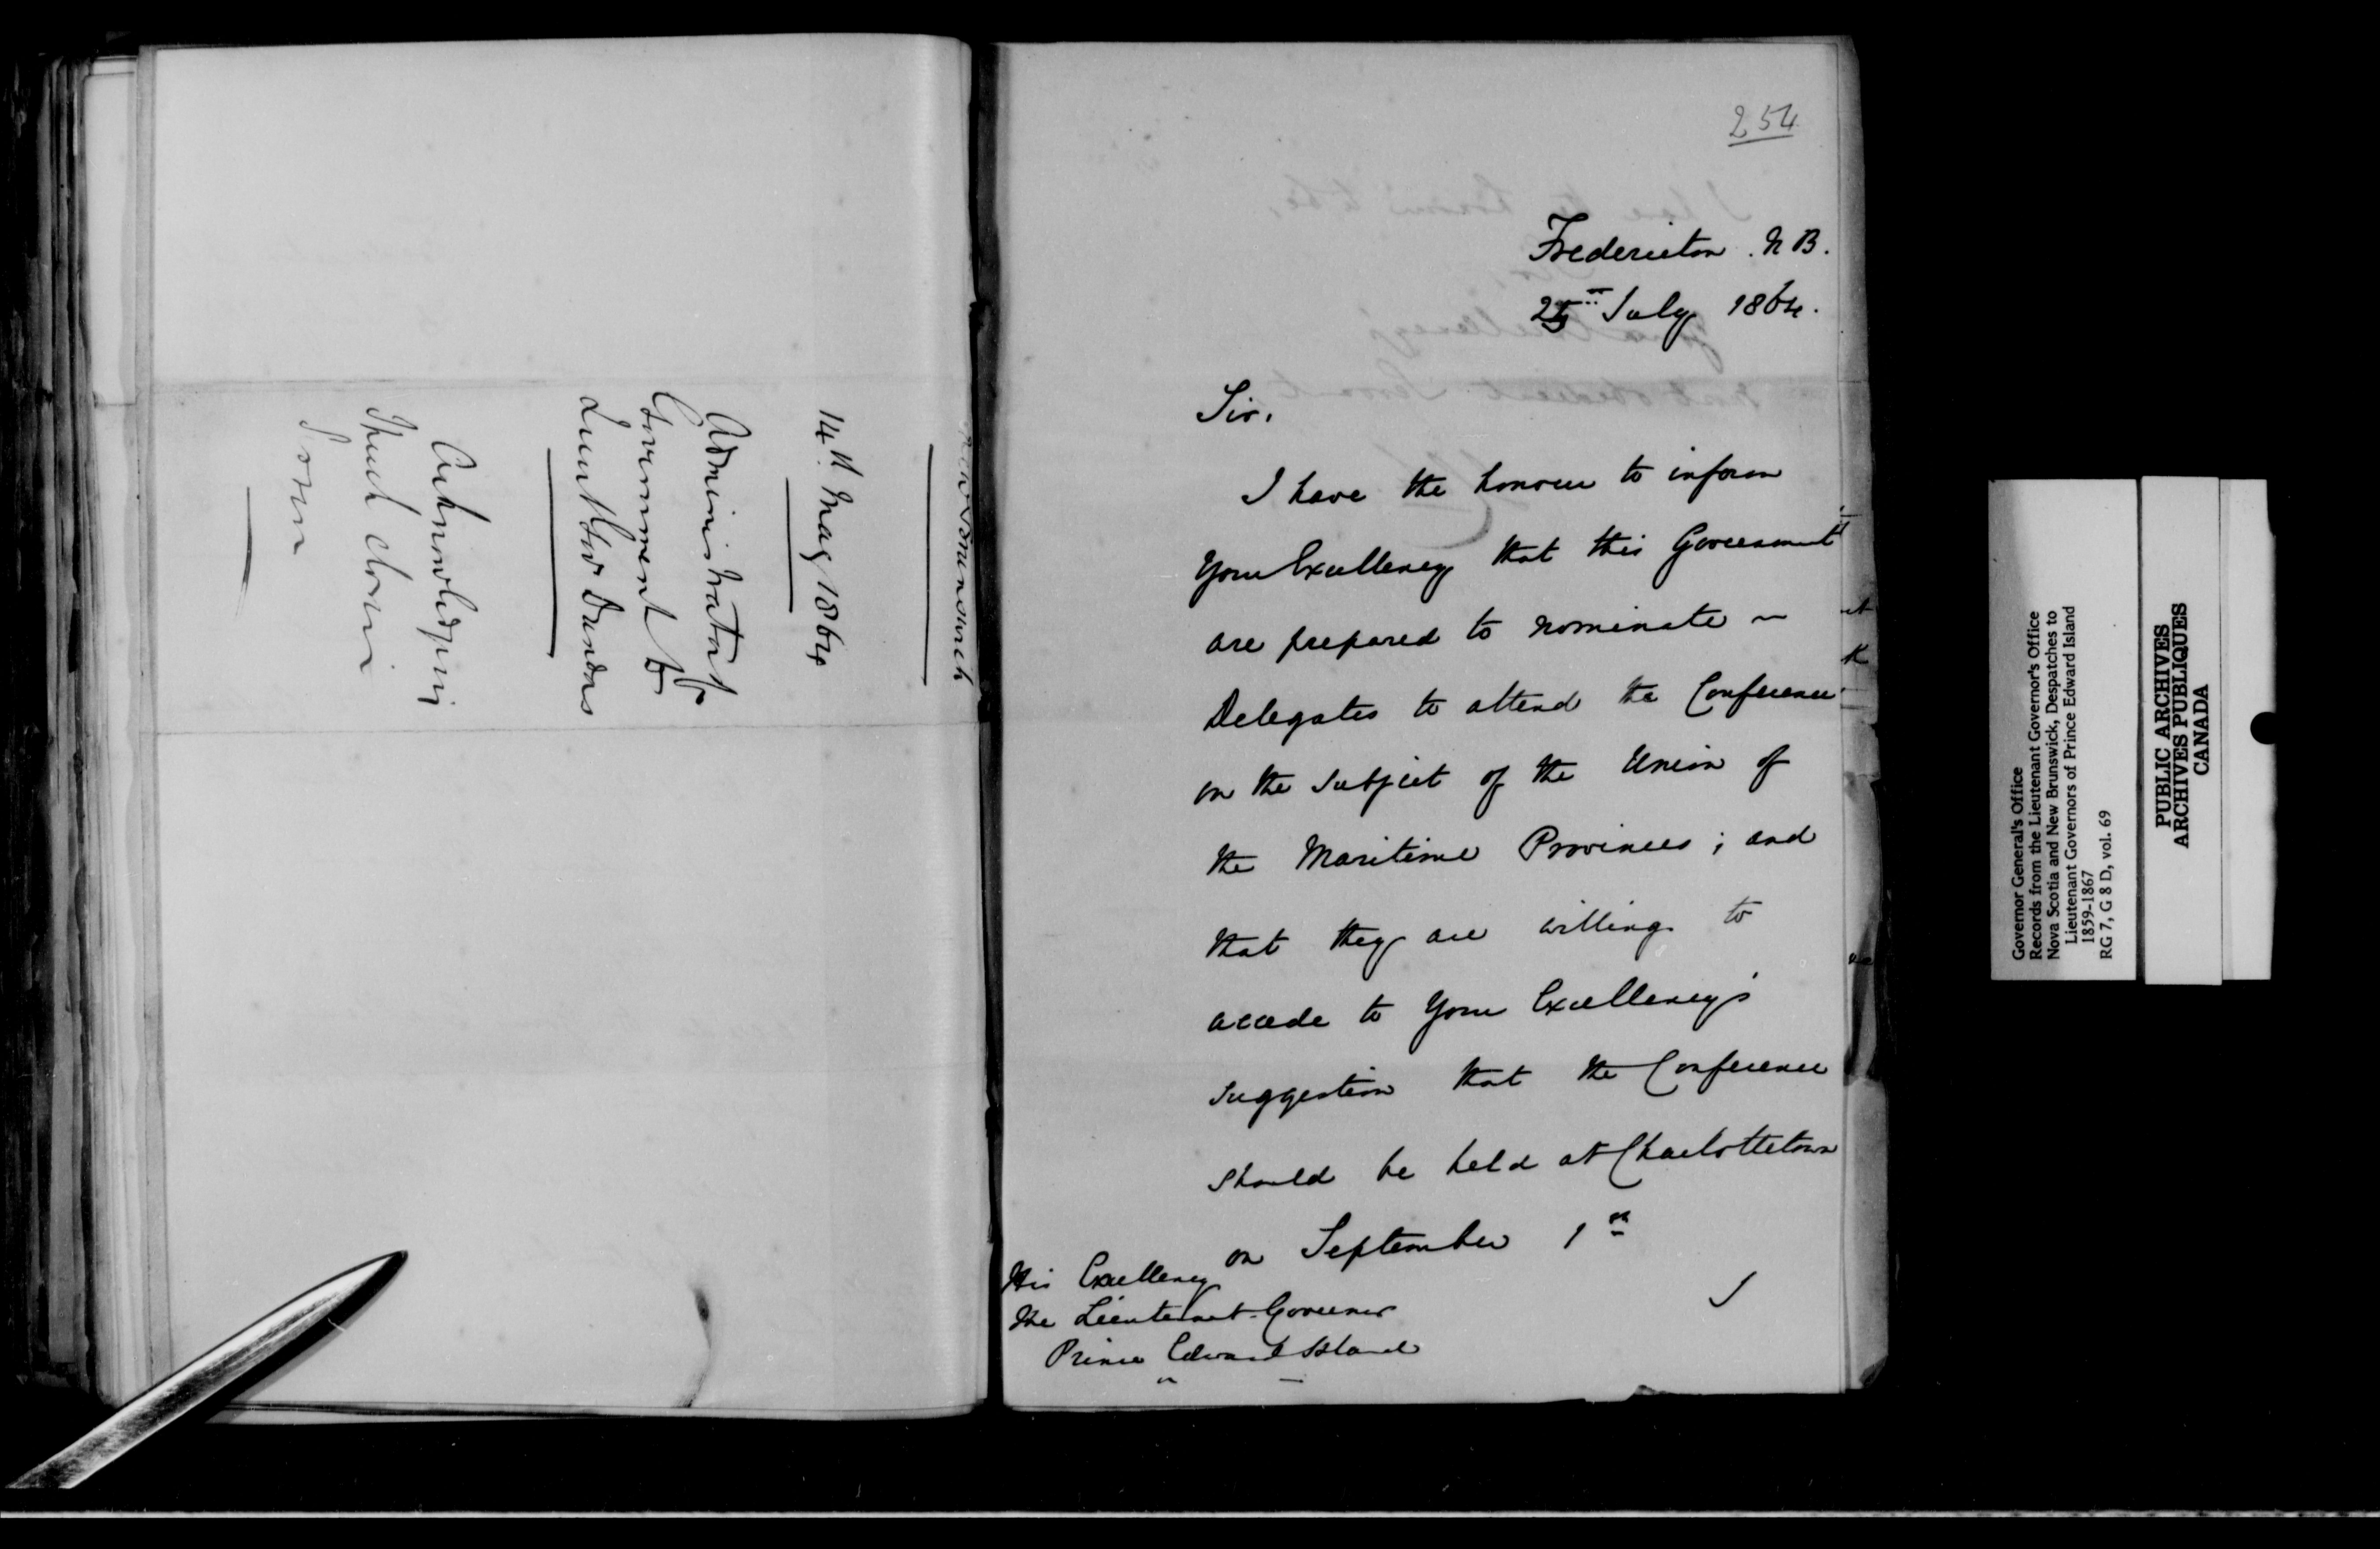 New Brunswick
14th May 1864
Administrator of
Government to
Lieut Gov Dundas
Acknowledging
Speech
254
Fredericton . N B.
25th July 1864.
Sir,
I have the honour to inform
Your Excellency that this Government
are prepared to nominate ~
Delegates to attend the Conference
on the subject of the Union of
the Maritime Provinces ; and
that they are willing to
accede to Your Excellency's
suggestion that the Conference
should be held at Charlottetown
on September 1st
His Excellency
The Lieutenant-Governor
Prince Edward Island
Governor General's Office
Records from the Lieutenant Governor's Office
Nova Scotia and New Brunswick, Despatches to
Lieutenant Governors of Prince Edward Island
1859-1867
RG 7, G 8 D, vol. 69
PUBLIC ARCHIVES
ARCHIVES PUBLIQUES
CANADA